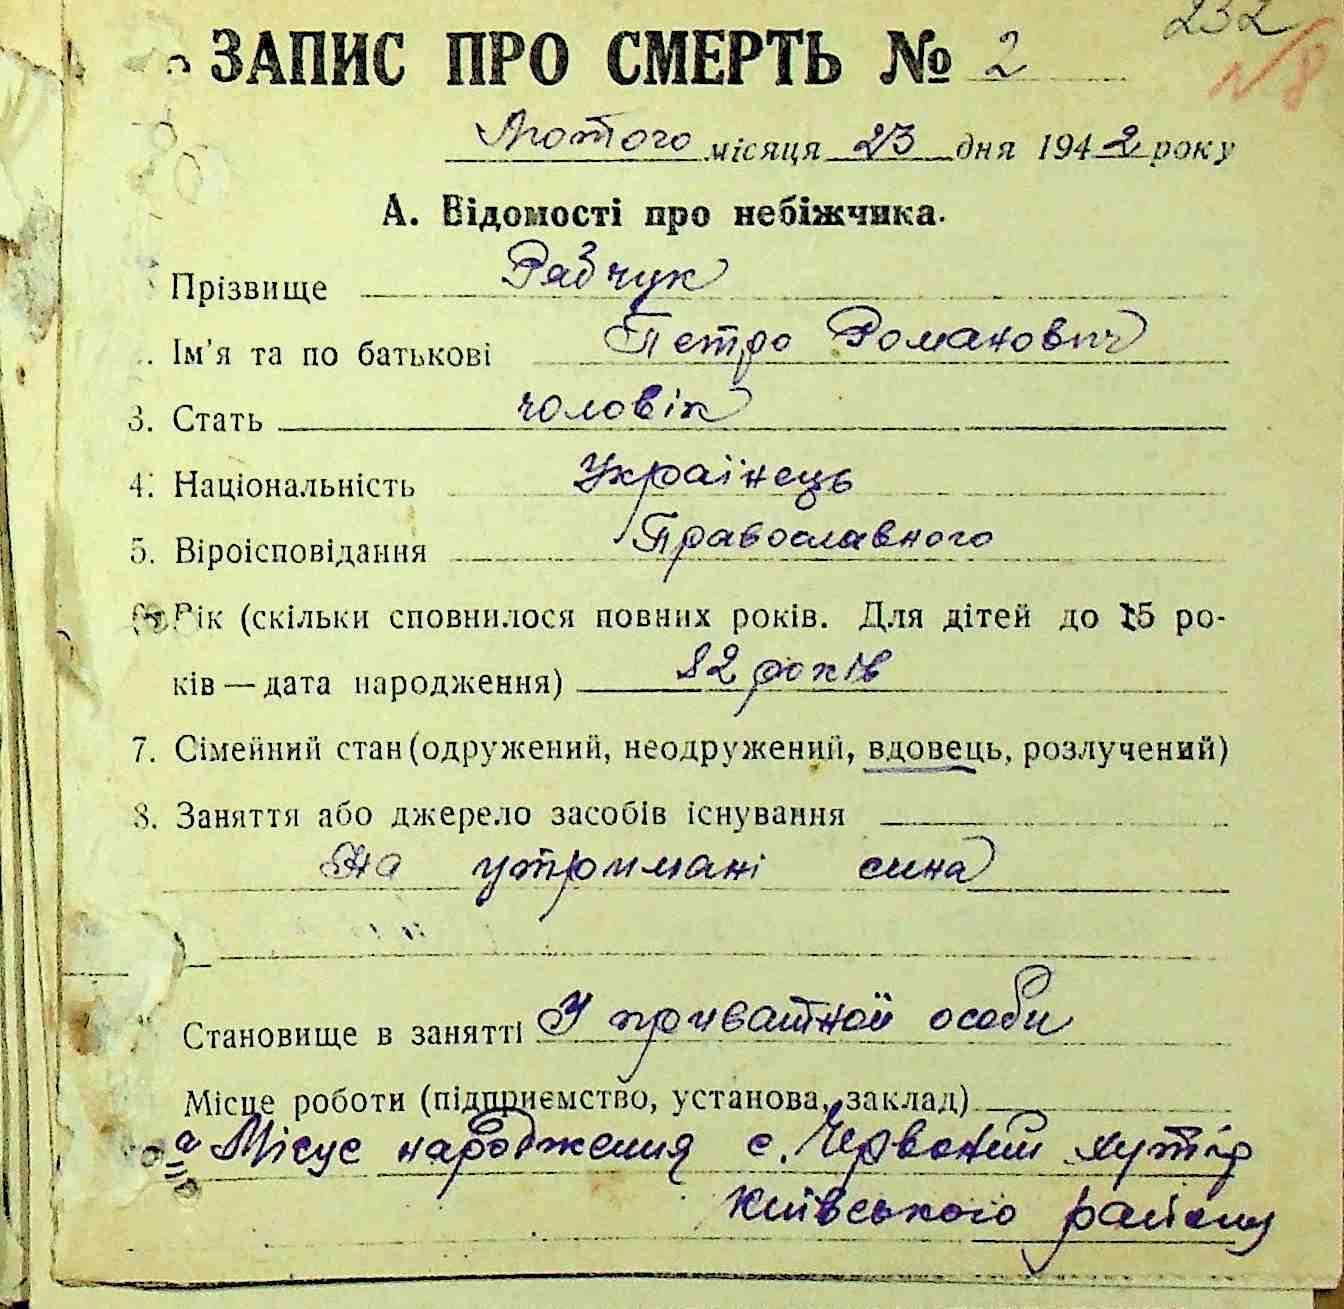 232
№8
ЗАПИС ПРО СМЕРТЬ № 2
Лютого місяця 23 дня 1942 року
А. Відомості про небіжчика.
Прізвище Рябчук
Ім'я та по батькові Петро Романович
3. Стать чоловік
4. Національність Українець
5. Віроісповідання Православного
6. Вік (скільки сповнилося повних років. Для дітей до 15 ро-
ків — дата народження) 82 років
7. Сімейний стан (одружений, неодружений, вдовець, розлучений)
8. Заняття або джерело засобів існування
На утримані сина
Становище в занятті У приватной особи
Місце роботи (підприємство, установа, заклад)
а Місце народження с. Червоний хутір
Київського району